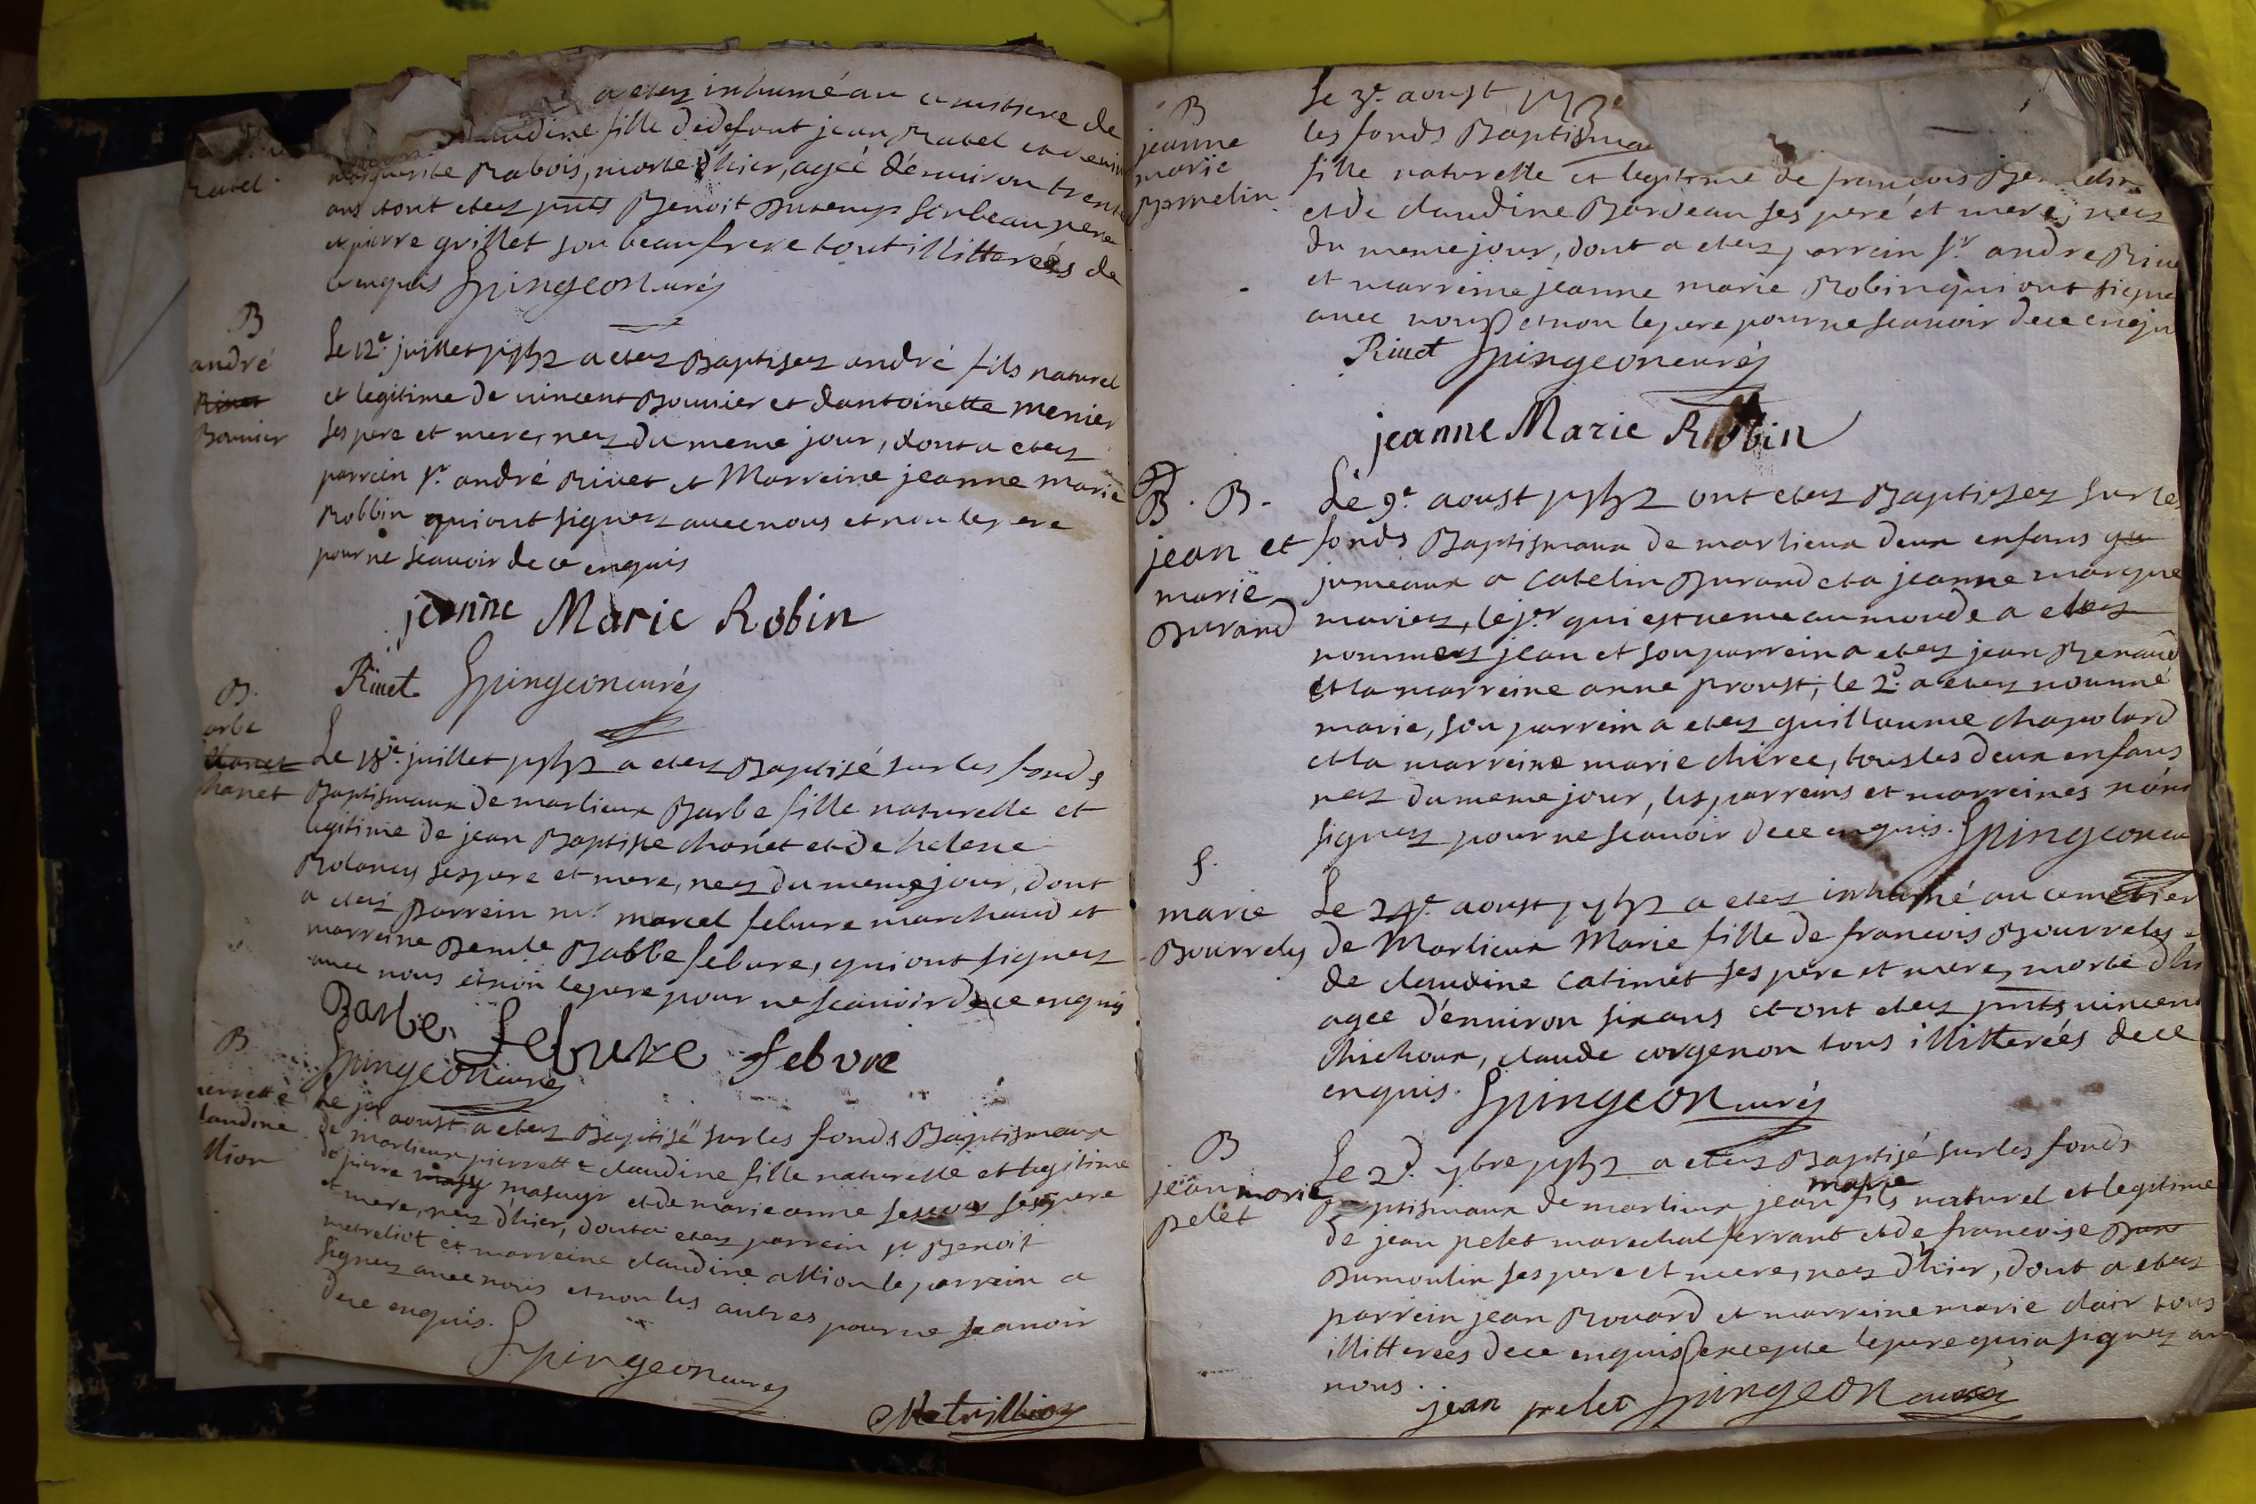 a etez inhumé au cimetiere de
claudine fille de defeut jean Ratel et de
marguerite Rabois, morte d'hier, agée d'environ trente
ans et ont etez pnts Benoit Duc son beau pere
et pierre grillet son beau frere tout illitterées de
ce enquis Spingeon curéz
Ratel
B
andré
Rivet
Bouvier
Le 12e. juillet a etez Baptisez andré fils naturel
et legitime de vincent Bouvier et d'antoinette menier
ses pere et mere, nez du meme jour, dont a etez
parrein Sr. andré Rivet et Marreine jeanne marie
Robbin qui ont signez avec nous et non le pere
pour ne scavoir de ce enquis
jeanne Marie Robin
Rivet Spingeon curéz
B.
arbe
chanet
Le 18e. juillet a etez Baptisé sur les fonds
Baptismaux de marlieux Barbe fille naturelle et
legitime de jean Baptiste chanet et de helene
ses pere et mere, nez du meme jour, dont
a etez parrein mr. marcel febure marchand et
marreine Babbe febure, qui ont signez
avec nous et non le pere pour ne scavoir de ce enquis
Barbe febure febvre
Spingeon curéz
B
ierrette
laudine
Le aoust a etez Baptisé sur les fonds Baptismaux
de marlieux pierrette claudine fille naturelle et legitime
de pierre masuyr et de marie anne ses pere
et mere, nez d'hier, dont a etez parrein Sr Benoit
metreliot et marreine claudine allion le parrein a
signez avec nous et non les autres pour ne scavoir
de ce enquis.
Spingeon curéz
B
jeanne
marie
Le 3e. aoust
les fonds Baptismaux
fille naturelle et legitime de francois
et de claudine Bordeau ses peré et mere, nez
du meme jour, dont a etez parrein Sr. andre Rivet
et marreine jeanne marie Robin qui ont signe
avec nous et non le pere pour ne scavoir de ce enqu
Rivet Spingeon curéz
jeanne Marie Robin
B. B.
jean et
marie
Durand
Le 9e. aoust ont etez Baptisez sur les
fonds Baptismaux de marlieux deux enfans
jumeaux a Catelin Durand et a jeanne marque
mariez, le jer qui est venu au monde a etez
nommez jean et son parrein a etez jean Benand
et la marreine anne proust, le 2d. a etez nommé
marie, son parrein a etez guillaume chapolard
et la marreine marie chiree, tous les deux enfans
nez du meme jour, les parreins et marreines n'ont
signez pour ne scavoir de ce enquis. Spingeon cu
S.
marie
Bourrely
Le 24e. aoust a etez inhumé au cimetier
de Marlieux Marie fille de francois Bourrely et
de claudine Catimet ses pere et mere, morte d'hi
agée d'environ six ans et ont etez pnts vincent
chichoux, claude corgenon tous illitterées de ce
enquis. Spingeon curéz
B
jean marie
pelet
Le 2d. 7bre a etez Baptisé sur les fonds
Baptismaux de marlieux jean marie fils naturel et legitime
de jean pelet marechal ferrant et de francoise
Dumoulin ses pere et mere, nez d'hier, dont a etez
parrein jean Rouard et marreine marie clair tous
illitterees de ce enquis excepté le pere qui a signez av
nous.
jean pelet Spingeon curé